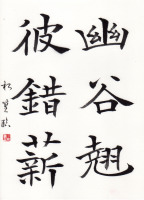 幽谷翹
彼錯薪